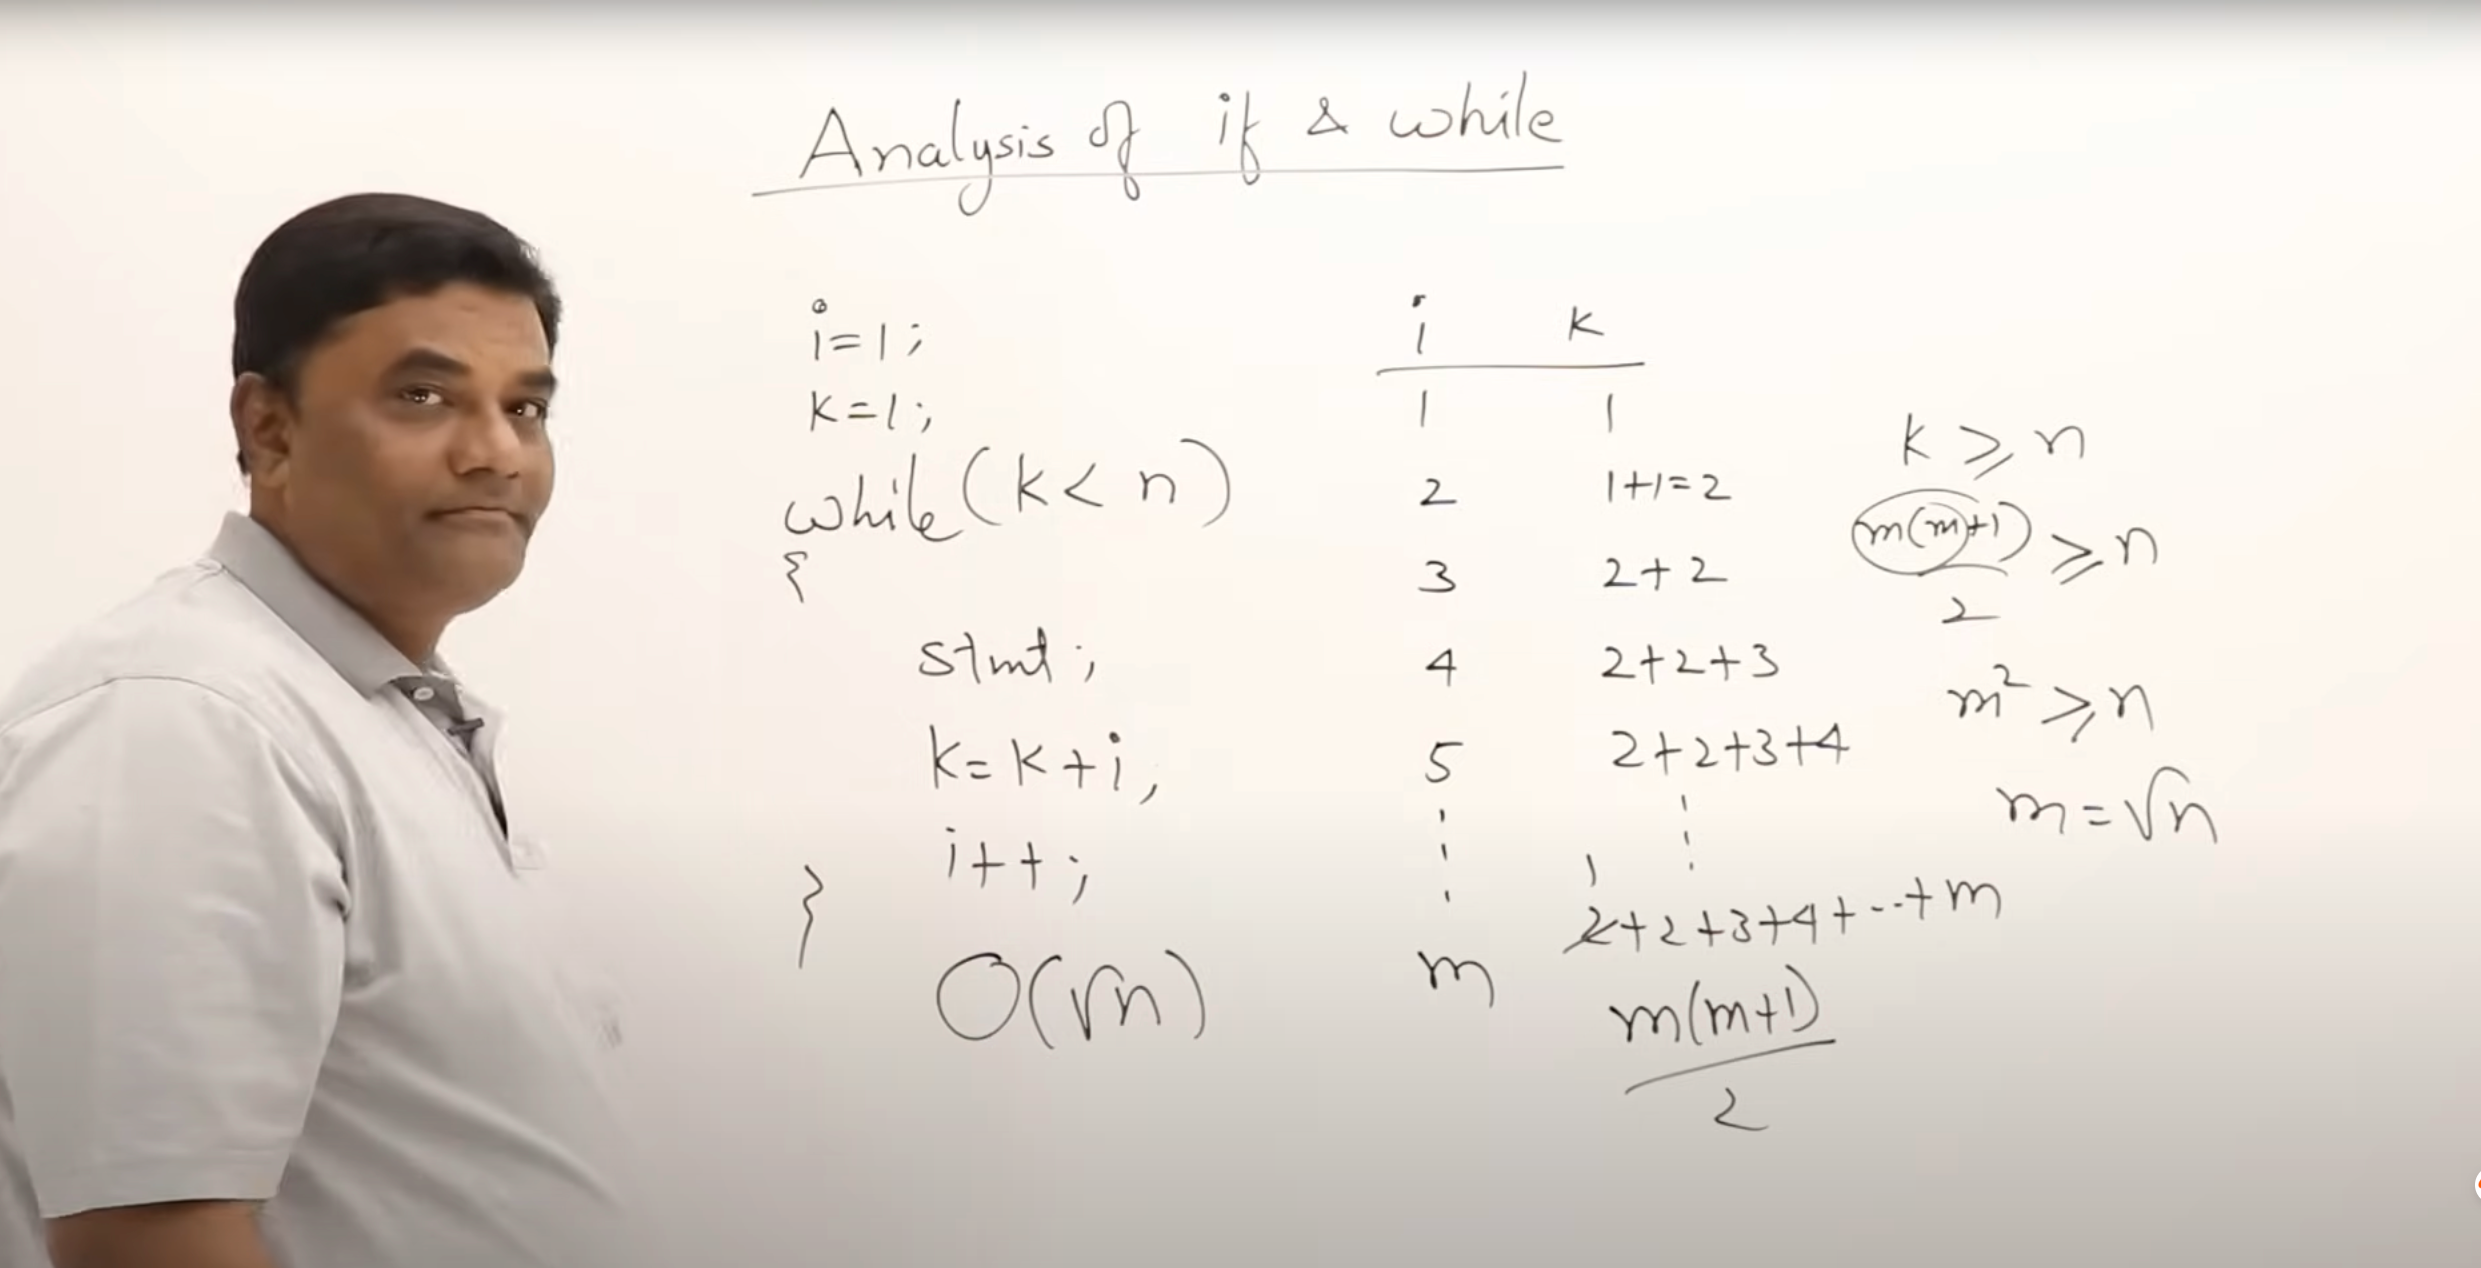 Analysis of if & while
i=1;
k=1;
while(k<n)
{
stmt;
k=k+i;
i++;
}
O(√n)
i k
1 1
2 1+1=2
3 2+2
4 2+2+3
5 2+2+3+4
1
m 2+2+3+4+--+m
m(m+1)
2
k≥n
m(m+1)
≥n
2
m²≥n
m=√n